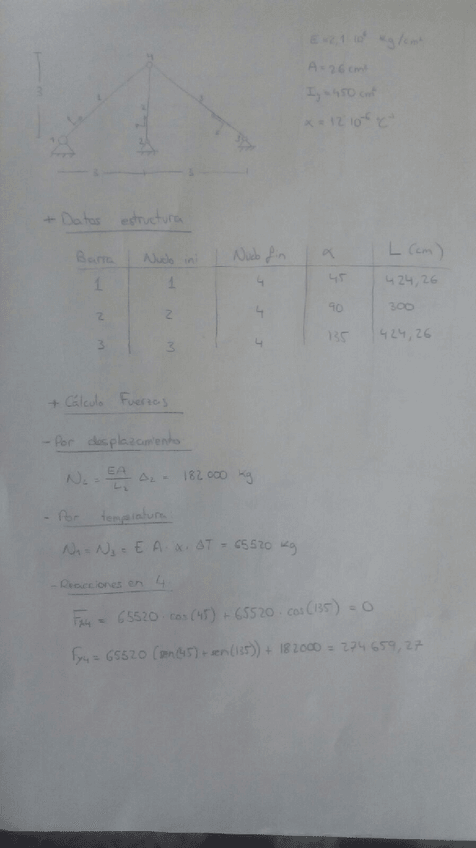 E = 2,1 · 10⁶ kg/cm²
A = 26 cm²
I₃ = 450 cm⁴
α = 12 · 10⁻⁶ ºC⁻¹
4
3
1
2
3
+ Datos estructura
Barra Nudo ini Nudo fin α L (cm)
1 1 4 45 424,26
2 2 4 90 300
3 3 4 135 424,26
+ Cálculo Fuerzas
- Por desplazamiento
N₂ = EA/L₂ Δ₂ = 182 000 kg
- Por temperatura
N₁ = N₃ = E · A · α · ΔT = 65520 kg
- Reacciones en 4
Fx₄ = 65520 · cos(45) + 65520 · cos(135) = 0
Fy₄ = 65520 (sen(45) + sen(135)) + 182000 = 274 659,27